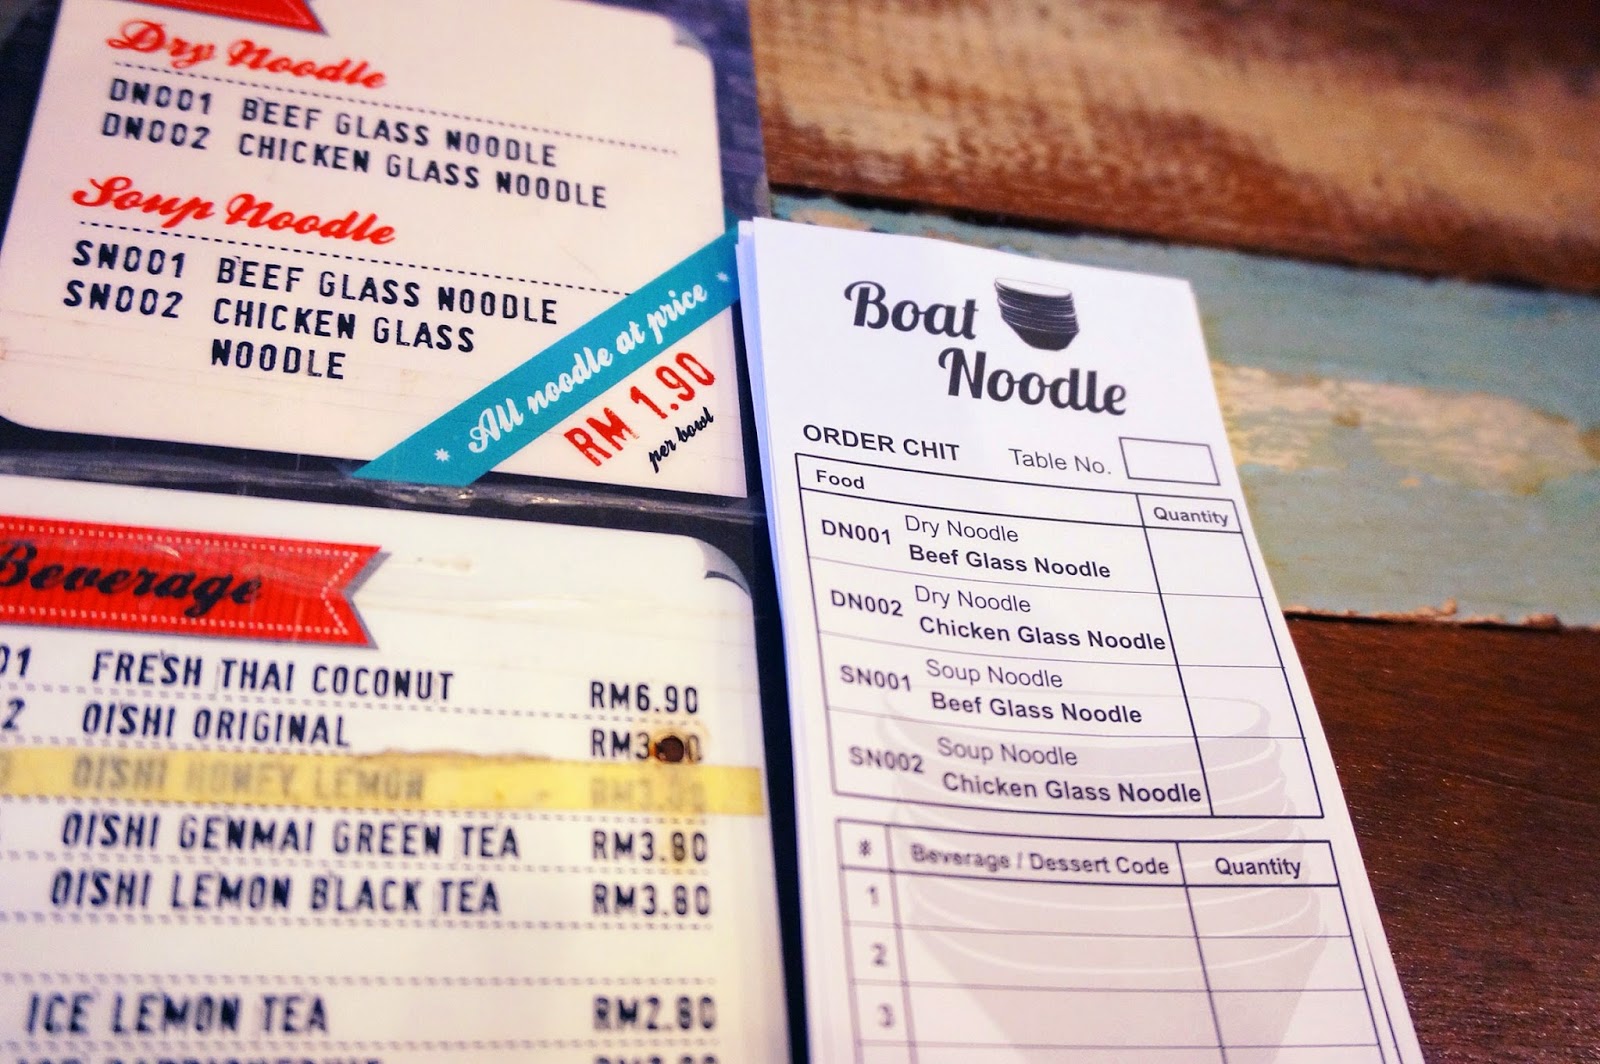 Dry Noodle
DN001 BEEF GLASS NOODLE
DN002 CHICKEN GLASS NOODLE
Soup Noodle
SN001 BEEF GLASS NOODLE
SN002 CHICKEN GLASS
NOODLE
* All noodle at price *
RM 1.90
per bowl
Beverage
01 FRESH THAI COCONUT RM6.90
2 OISHI ORIGINAL
OISHI HONEY LEMON
OISHI GENMAI GREEN TEA RM3.80
OISHI LEMON BLACK TEA RM3.80
ICE LEMON TEA RM2.80
Boat
Noodle
ORDER CHIT Table No.
Food Quantity
DN001 Dry Noodle
Beef Glass Noodle
DN002 Dry Noodle
Chicken Glass Noodle
SN001 Soup Noodle
Beef Glass Noodle
SN002 Soup Noodle
Chicken Glass Noodle
# Beverage / Dessert Code Quantity
1
2
3